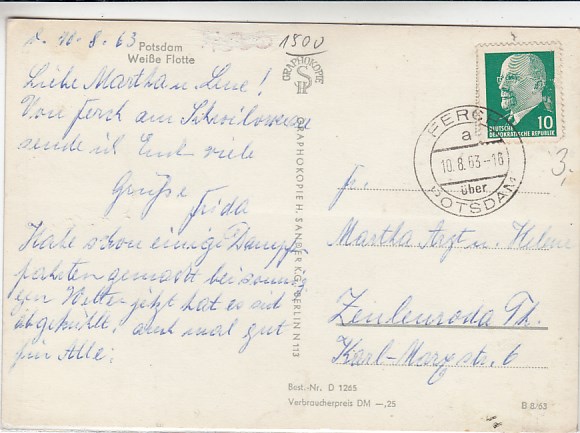 d. 10.8.63
Potsdam
Weiße Flotte
1500
Liebe Martha u. Lene!
Von Ferch am Schwilowsee
sende ich Euch viele
Grüße
Frida
Habe schon einige Dampf
fahrten gemacht bei sonni
gen Wetter jetzt hat es sich
abgekühlt, auch mal gut
für Alle.
GRAPHOKOPIE
GRAPHOKOPIE H. SANDER K.G., BERLIN N 113
DEUTSCHE
DEMOKRATISCHE REPUBLIK
10
FERCH
a
10.8.63-16
über
POTSDAM
3,
Fr.
Martha Arzt u. Helene
Zeulenroda Th.
Karl-Marxstr. 6
Best.-Nr. D 1265
Verbraucherpreis DM —,25
B 8/63